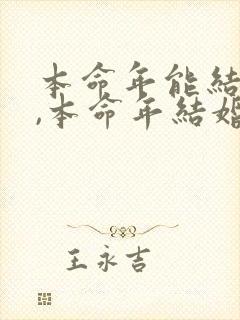 本命年能結
,本命年結婚
王永吉